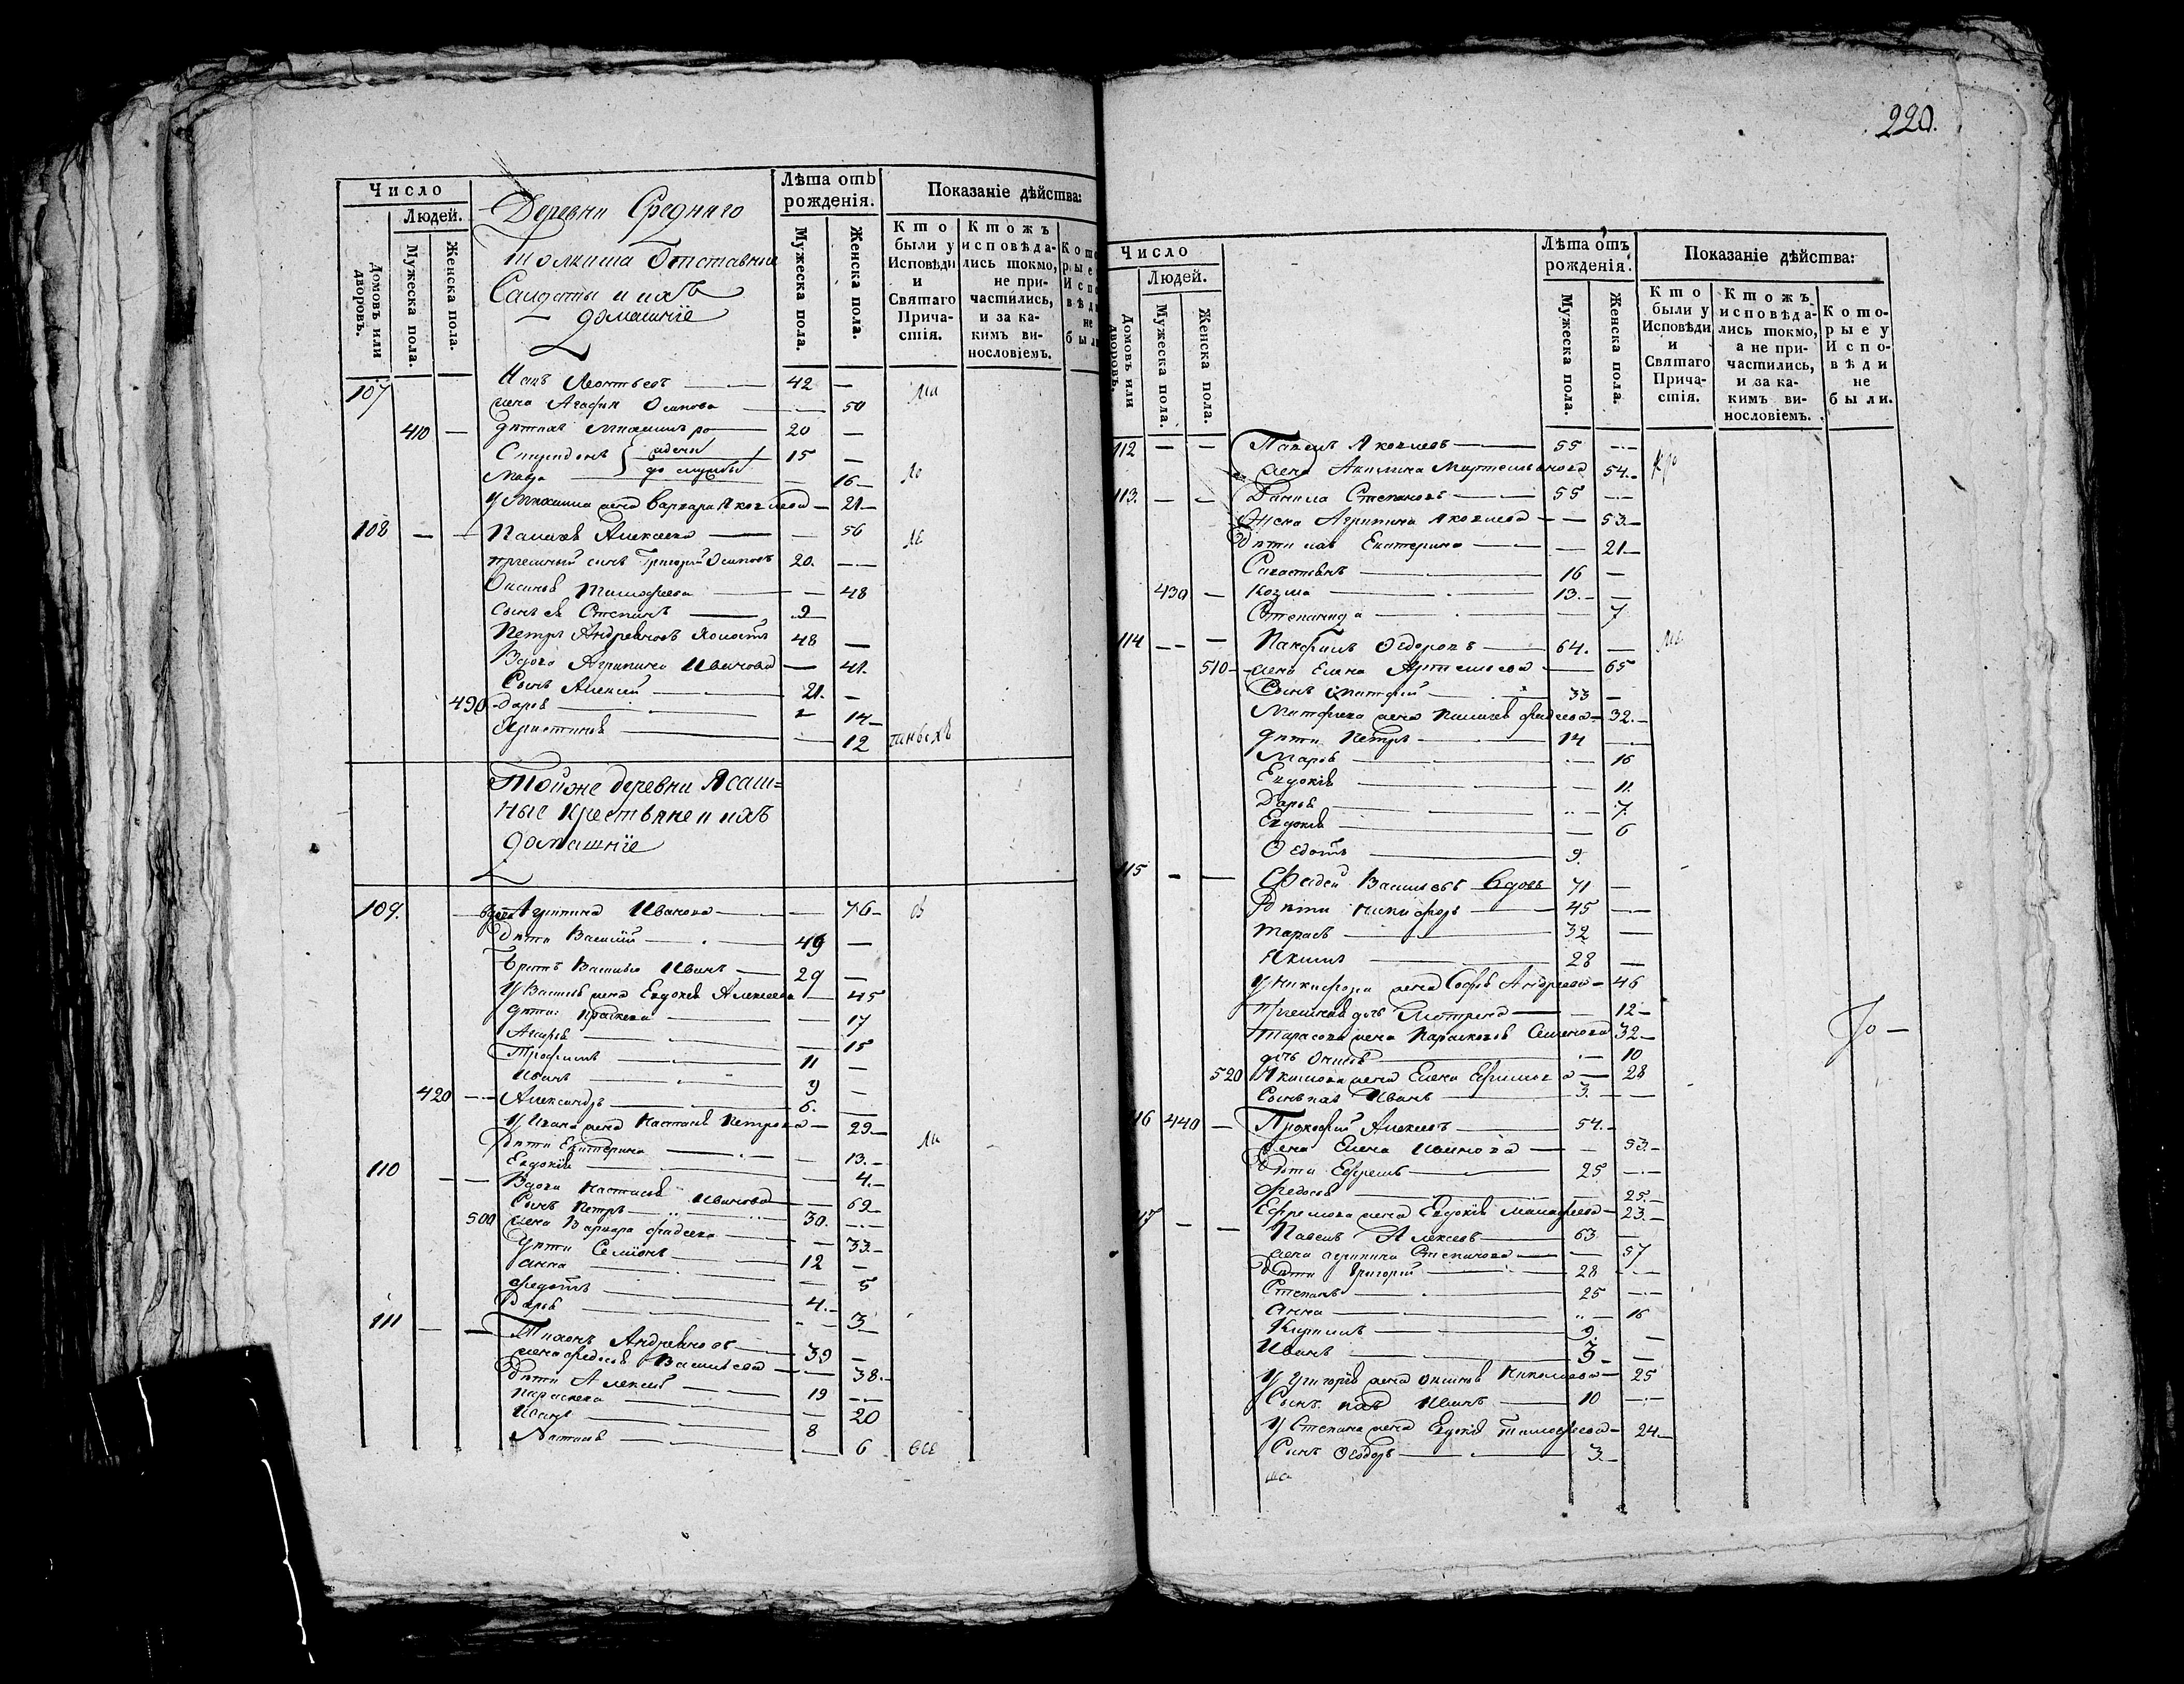 220.
Число
Людей.
Домовъ или дворовъ.
Мужеска пола.
Женска пола.
Деревни Среднѧго
Толкиша Отставныя
Салдаты и ихъ
домашніе
Лѣта отъ рожденія.
Мужеска пола.
Женска пола.
Показаніе дѣйства:
Кто были у Исповѣди и Святаго Причастія.
Ктожъ исповѣдались токмо, не причастились, и за какимъ винословіемъ.
107 Леонтьевъ 42 —
жена Агафия Осипова — 50
410 — дѣти ихъ 20 —
15 —
до службы
Мавра — 16
жена Варвара Яковлева — 21
108 — — Алексеева — 56
сынъ Григорий Осиповъ 20. —
Тимофеева — 48
сынъ ея Степанъ 9
Петръ Андреяновъ холостъ 48 —
Вдова Агрипина Иванова — 41.
Сынъ Алексей 21. —
490 Дарья — 14
Христинья — 12
Тойже деревни Ясаш=
ные крестьяне и ихъ
домашніе
109. вдова Агрипина Иванова — 76
Дѣти Василий 49 —
Братъ Иванъ 29 —
У Василья жена Евдокия Алексеева — 45
дѣти: Праскева — 17
— 15
Трофимъ 11 —
Иванъ 9 —
420 — Александръ 6. —
У Ивана жена Настасья Петрова — 29
Дѣти Екатерина — 13.
Евдокия — 4.
110 — — Вдова Настасья Иванова — 69
Сынъ Петръ 30. —
500 жена Варвара Фадеева — 33
Дѣти Семионъ 12 —
Анна — 5
Федотъ 4. —
Дарья — 3
111 — — Тихонъ Андреяновъ 39 —
жена Федосья Васильева — 38.
Дѣти Алексей 19 —
Параскева — 20
Иванъ 8
Настасья — 6 все
Число
Людей.
Домовъ или дворовъ.
Мужеска пола.
Женска пола.
Лѣта отъ рожденія.
Мужеска пола.
Женска пола.
Показаніе дѣйства:
Кто были у Исповѣди и Святаго Причастія.
Ктожъ исповѣдались токмо, а не причастились, и за какимъ винословіемъ.
Которые у Исповѣди не были.
112 — — Павелъ Яковлевъ 55 —
жена Акилина — 54.
113. — — Данила Степановъ 55 —
Жена Агрипина Яковлева — 53.
Дѣти ихъ Екатерина — 21
Савастьянъ 16 —
430 — Козма 13. —
Степанида — 7
114 — — Панфилъ Федоровъ 64. —
510 жена Елена Артемьева — 65
Сынъ Матфей 33 —
Матфея жена Фадеева — 32.
дѣти Петръ 14 —
Марья — 16
Евдокия — 11.
Дарья — 7.
Евдокия — 6
Федотъ 9.
115 — — Фадей Васильевъ вдовъ 71 —
Дѣти Никифоръ 45 —
Тарасъ 32 —
Якимъ 28 —
У Никифора жена Софья Андреева — 46
дочь — 12
Тарасова жена Параскева Семенова 32
дочь — 10
520 Якимова жена Елена Ефимова — 28
Сынъ ихъ Иванъ 3. —
116 440 — Прокофий Алексеевъ 54.
жена Елена Иванова — 53.
Дѣти Ефремъ 25 —
Федосья — 25.
Ефремова жена Евдокия — 23.
117 — — Павелъ Алексеевъ 63 —
жена Агрипина Степанова — 57
Дѣти Григорий 28 —
Степанъ 25 —
Анна — 16
Кирилъ 9. —
Иванъ 3 —
У Григорья жена Николаева — 25
Сынъ ихъ Иванъ 10 —
У Степана жена Евдокия Тимофеева — 24
Сынъ Феодоръ 3.